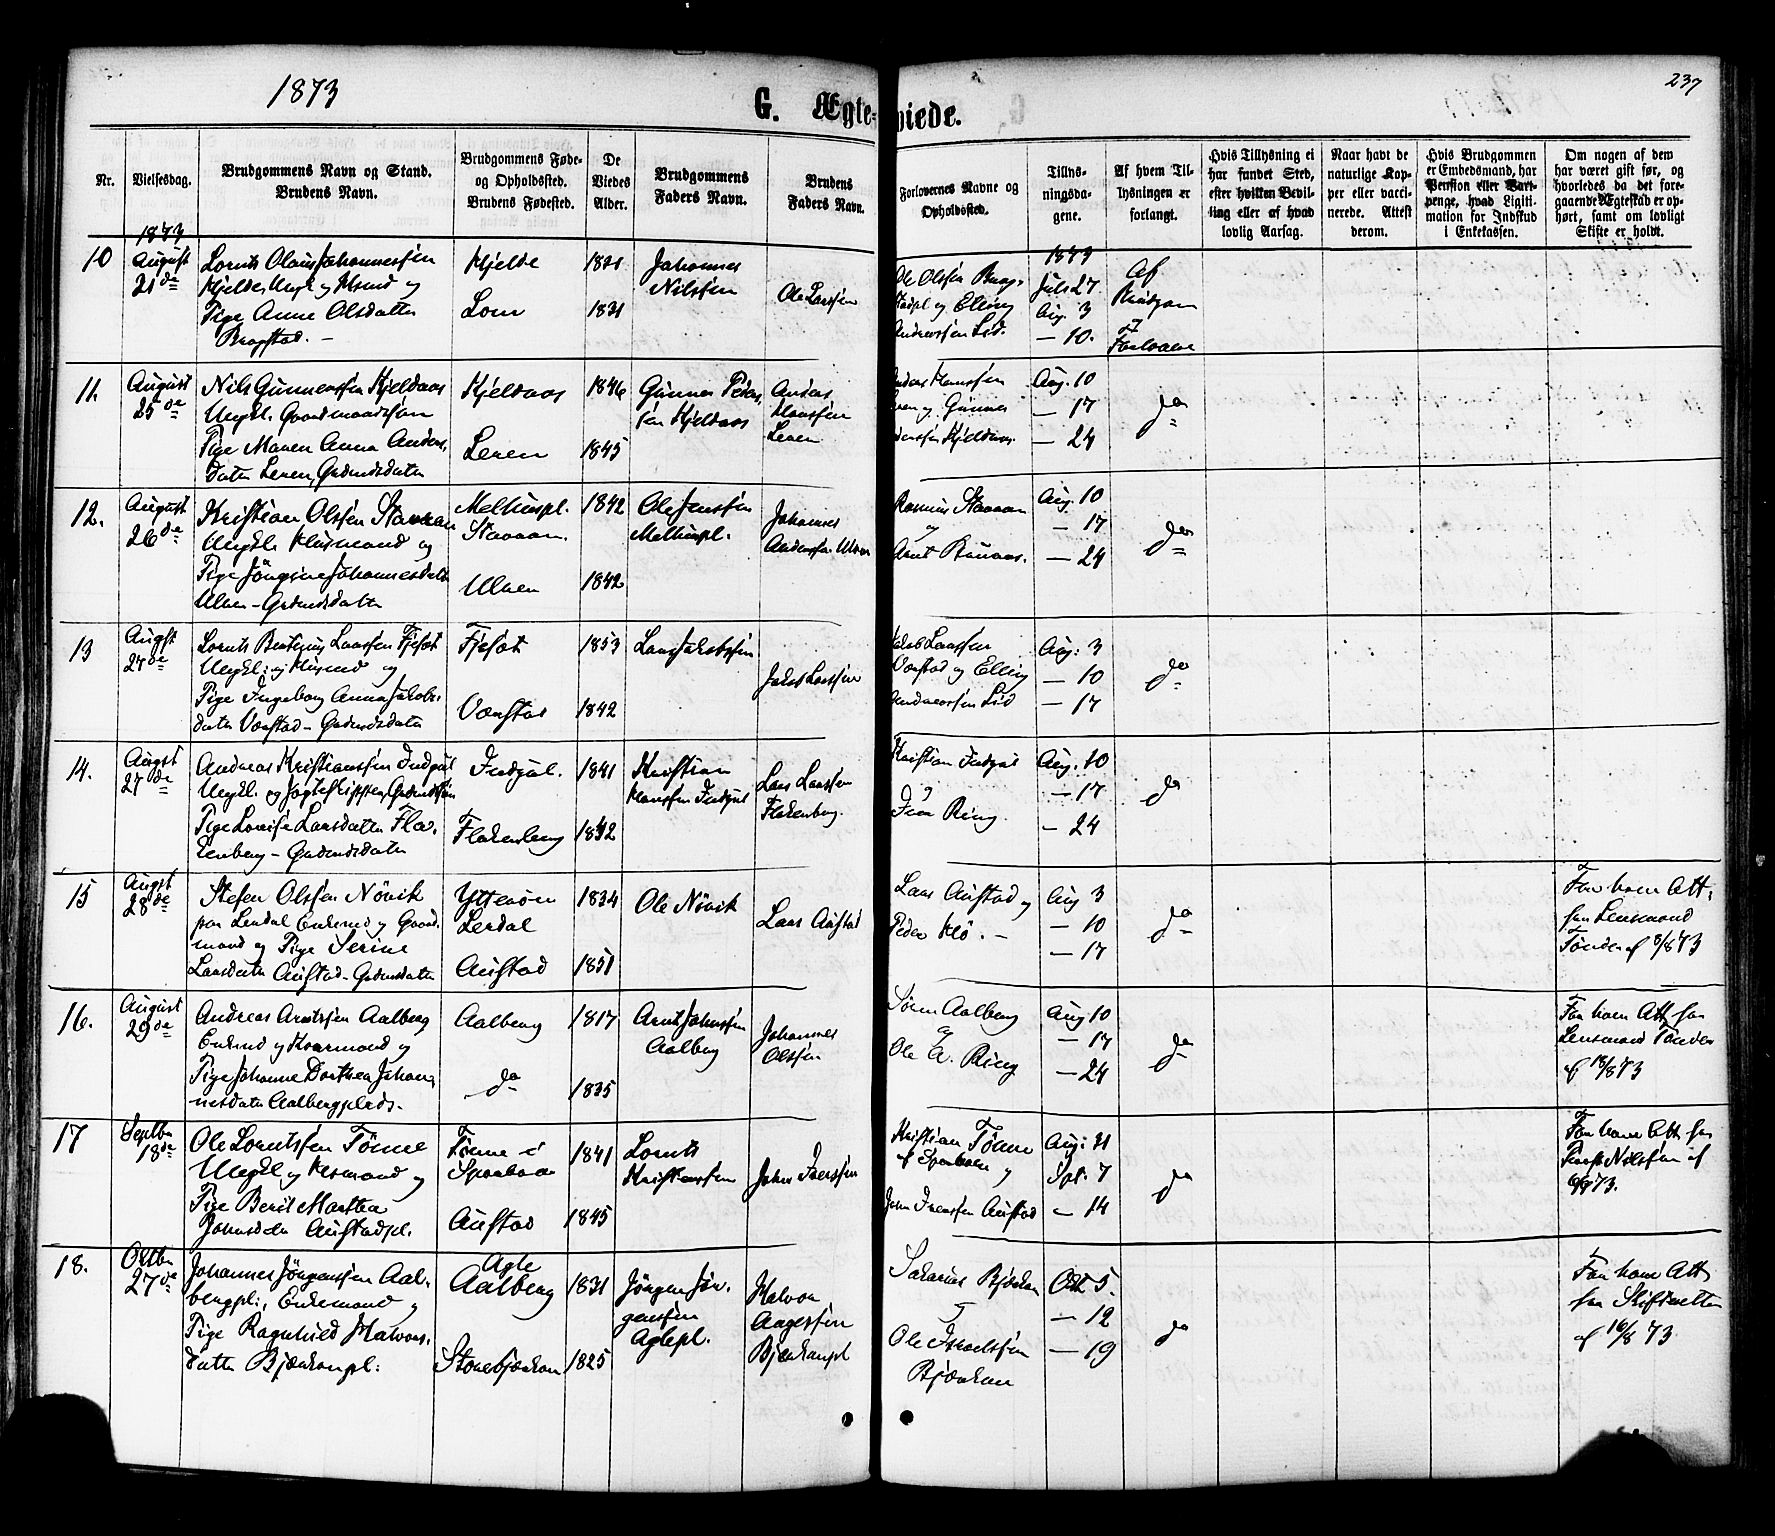 1873
G. Ægte-
viede.
237
Nr.
Vielsesdag.
Brudgommens Navn og Stand.
Brudens Navn.
Brudgommens Føde-
og Opholdssted.
Brudens Fødested.
De
Viedes
Alder.
Brudgommens
Faders Navn.
Brudens
Faders Navn.
Forlovernes Navne og
Opholdssted.
Tillys-
ningsda-
gene.
Af hvem Til-
lysningen er
forlangt.
Hvis Tillysning ei
har fundet Sted,
efter hvilken Bevil-
ling eller af hvad
lovlig Aarsag.
Naar havt de
naturlige Kop-
per eller vacci-
nerede. Attest
derom.
Hvis Brudgommen
er Embedsmand, har
Pension eller Vart-
penge, hvad Legiti-
mation for Indskud
i Enkekassen.
Om nogen af dem
har været gift før, og
hvorledes da det fore-
gaaende Ægteskab er op-
hørt, samt om lovligt
Skifte er holdt.
1873
10
August
21de
Lornts Olaus Johannessen
Kjelde, Ungk. og Husmd og
Pige Anne Olsdatter
Bragstad. -
Kjelde
Lom
1821
1831
Johannes
Nilssen
Ole Larssen
Ole Olssen Brag-
stadpl og Elling
Andreassen Lid.
1873
Juli 27
Aug. 3
— 10.
Af
Brudgom
&
Forlovere
11.
August
25de
Nils Gunnerssen Kjeldaas
Ungkl. Gaardmandssøn
Pige Maren Anna Anders-
datter Leren, Grdmdsdatter
Kjeldaas
Leren
1846
1845
Gunner Peders-
sen Kjeldaas
Anders
Hanssen
Leren
Anders Hanssen
Leren og Gunner
Pederssen Kjeldaas.
Aug. 10
— 17
— 24
do
12.
August
26de
Kristian Olssen Stavran
Ungkl. Husmand og
Pige Jörgine Johannesdatter
Ulven - Grdmdsdatter
Melhuspl.
Stavran.
Ulven
1842
1842
Ole Jenssen
Melhuspl.
Johannes
Anderssen Ulven
Rasmus Stavran
og
Arnt Brunaas.
Aug. 10
— 17
— 24
do
13
Augst
27de
Lornts Larssen Fjeset
Ungkl: og Husmd og
Pige Ingeborg Anna Jakobs-
datter Værstad - Grdmdsdatter
Fjeset
Værstad
1853
1842
Lars Jakobssen
Jakob Larssen
Jakob Larssen
Værstad og Elling
Andreassen Lid
Aug: 3
— 10
— 17
do
14.
Augst
27de
Andreas Kristianssen Indgul
Ungkl. og Jagteskipper, Grdmdssøn
Pige Lovise Larsdatter Fla-
kenberg - Grdmdsdatter
Indgul.
Flakenberg
1841
1842
Kristian
Hanssen Indgul
Lars Larssen
Flakenberg.
Kristian Indgul
og
Iver Ring.
Aug. 10
— 17
— 24
do
15
Augst
28de
Stefen Olssen Növik
paa Lerdal Enkemd og Gaard-
mand og Pige Serine
Larsdatter Austad - Grdmdsdatter
Ytterøen
Lerdal
Austad
1834
1851
Ole Növik
Lars Austad
Lars Austad og
Peder Klö. -
Aug 3
— 10
— 17
do
For ham Att-
fra Lensmand
Tønder af 8/8 73
16.
August
29de
Andreas Arntssen Aalberg
Enkemd og Kaarmand og
Pige Johanne Dorthea Johan-
nesdatter Aalbergplads.
Aalberg
do
1817
1835
Arnt Johnssen
Aalberg
Johannes
Olssen
Sören Aalberg
og
Ole A. Ring
Aug 10
— 17
— 24
do
For ham Att fra
Lensmand Tønder
af 18/8 73
17
Septbr
18de
Ole Lorntssen Tönne
Ungkl og Husmand og
Pige Berit Martha
Johnsdatter Austadpl.
Tönne i
Sparboen
Austad
1841
1845
Lornts
Kristianssen
John Iverssen
Kristian Tönne
af Sparboen og
John Iverssen Austad
Aug: 31
Spt. 7
- 14
do
For ham Att fra
Nilssen af
18.
Oktbr
27de
Johannes Jörgenssen Aal-
bergpl:, Enkemand og
Pige Ragnhild Halvors-
datter Björkanpl:
Agle
Aalberg
Stenebjörkan
1831
1825
Jörgen Jör-
genssen
Aglepl.
Halvor
Aagessen
Björkanpl
Sakarias Björkan
&
Ole Israelssen
Björkan
Okt 5.
— 12
— 19
do
For ham Att
fra Skifteretten
af 16/8 73.